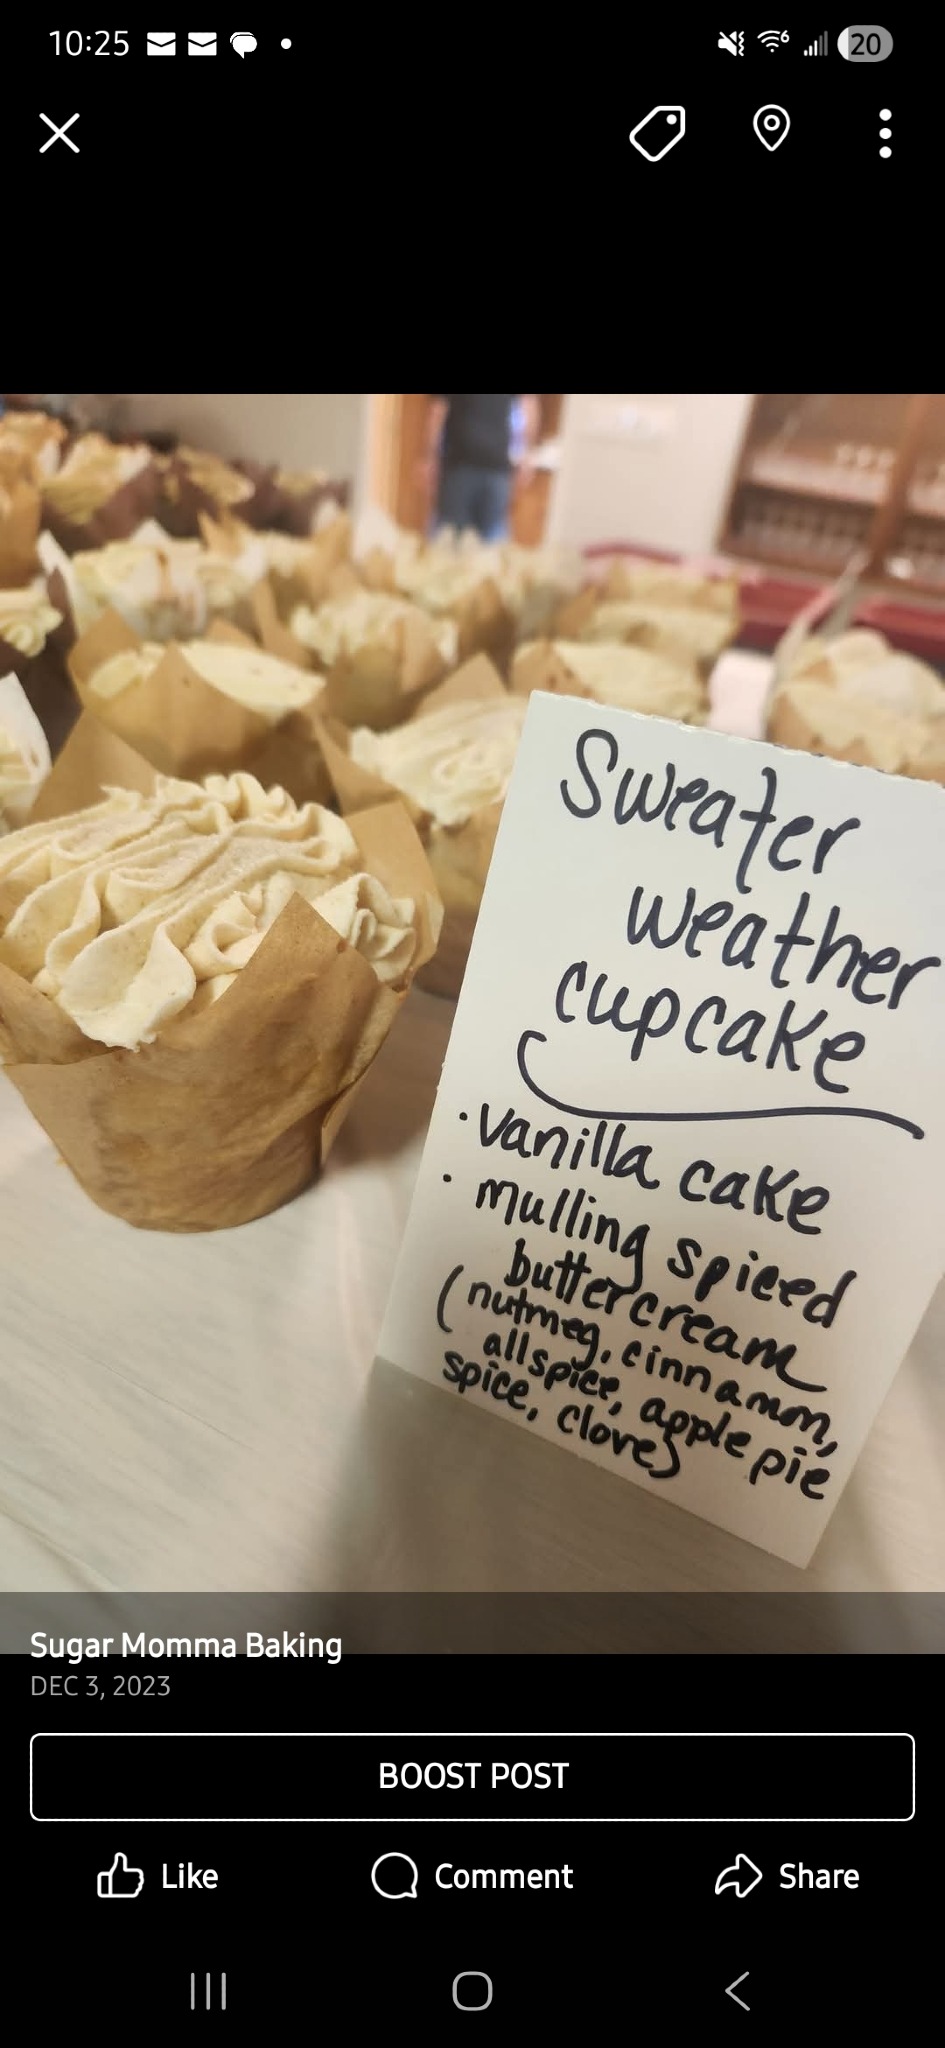 10:25
6
20
Sweater
weather
cupcake
• vanilla cake
• mulling spiced
buttercream
(nutmeg, cinnamon,
allspice, apple pie
spice, clove)
Sugar Momma Baking
DEC 3, 2023
BOOST POST
Like
Comment
Share